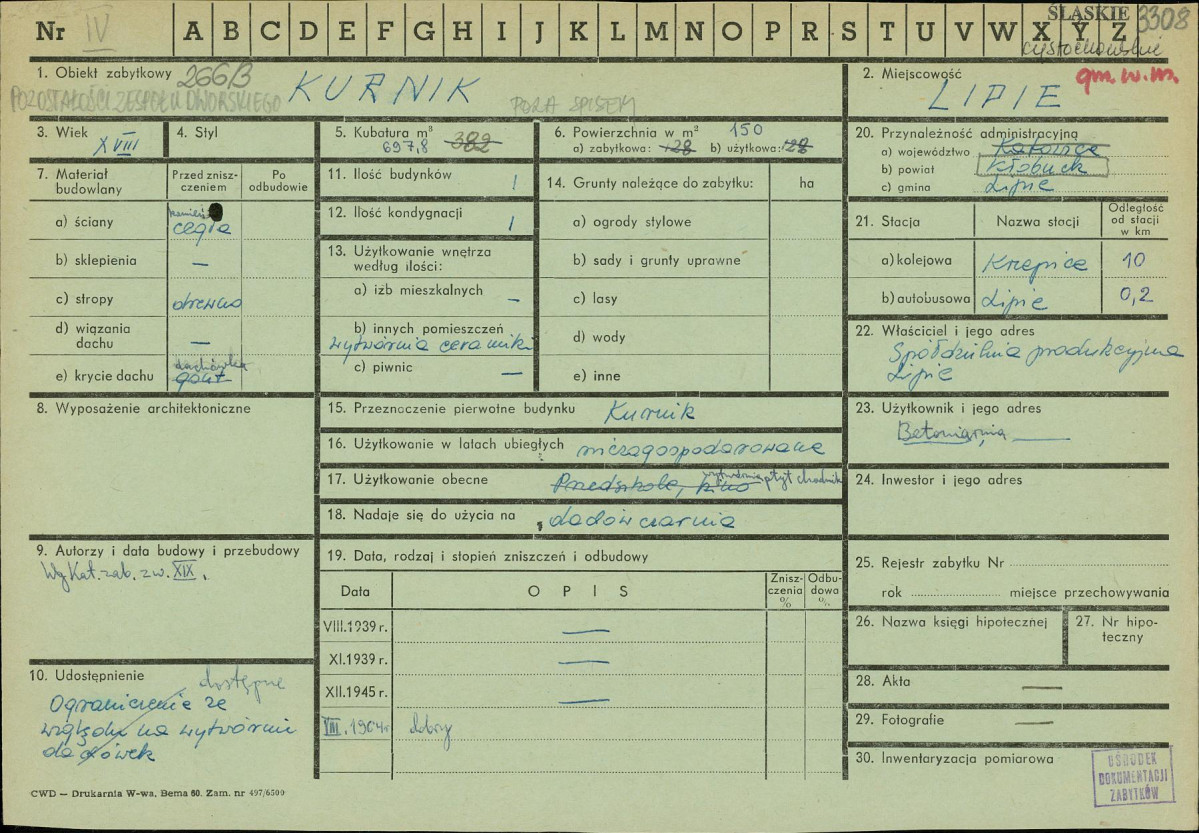 Nr IV A B C D E F G H I J K L M N O P R S T U V W X Y Z
ŚLĄSKIE 3308
częstochowskie
1. Obiekt zabytkowy 266/3 KURNIK
POZOSTAŁOŚCI ZESPOŁU DWORSKIEGO POZA SPISEM
2. Miejscowość gm. w.m.
LIPIE
3. Wiek
XVIII
4. Styl
5. Kubatura m³
697,8 382
6. Powierzchnia w m² 150
a) zabytkowa: 128 b) użytkowa: 128
20. Przynależność administracyjna
a) województwo Katowice
b) powiat Kłobuck
c) gmina Lipie
7. Materiał budowlany
Przed znisz-
czeniem
Po
odbudowie
a) ściany kamień cegła
b) sklepienia —
c) stropy drewno
d) wiązania
dachu —
e) krycie dachu dachówka
gont
11. Ilość budynków 1
12. Ilość kondygnacji 1
13. Użytkowanie wnętrza
według ilości:
a) izb mieszkalnych —
b) innych pomieszczeń
wytwórnia ceramiki
c) piwnic —
14. Grunty należące do zabytku: ha
a) ogrody stylowe
b) sady i grunty uprawne
c) lasy
d) wody
e) inne
21. Stacja Nazwa stacji Odległość
od stacji
w km
a) kolejowa Krzepice 10
b) autobusowa Lipie 0,2
22. Właściciel i jego adres
Spółdzielnia produkcyjna
Lipie
8. Wyposażenie architektoniczne
15. Przeznaczenie pierwotne budynku Kurnik
16. Użytkowanie w latach ubiegłych niezagospodarowane
17. Użytkowanie obecne Przedszkole, kino wytwórnia płyt chodnik
18. Nadaje się do użycia na
23. Użytkownik i jego adres
Betoniarnia —
24. Inwestor i jego adres
9. Autorzy i data budowy i przebudowy
Wg Kat. zab. zw. XIX.
19. Data, rodzaj i stopień zniszczeń i odbudowy
Data OPIS Znisz-
czenia
% Odbu-
dowa
%
VIII.1939 r. —
XI.1939 r. —
XII.1945 r. —
VIII.1964r dobry
25. Rejestr zabytku Nr
rok miejsce przechowywania
26. Nazwa księgi hipotecznej
27. Nr hipo-
teczny
28. Akta —
29. Fotografie —
30. Inwentaryzacja pomiarowa
OŚRODEK
DOKUMENTACJI
ZABYTKÓW
10. Udostępnienie
dostępne
Ograniczenie ze
względu na wytwórnię
dachówek
CWD — Drukarnia W-wa, Bema 60. Zam. nr 497/6500